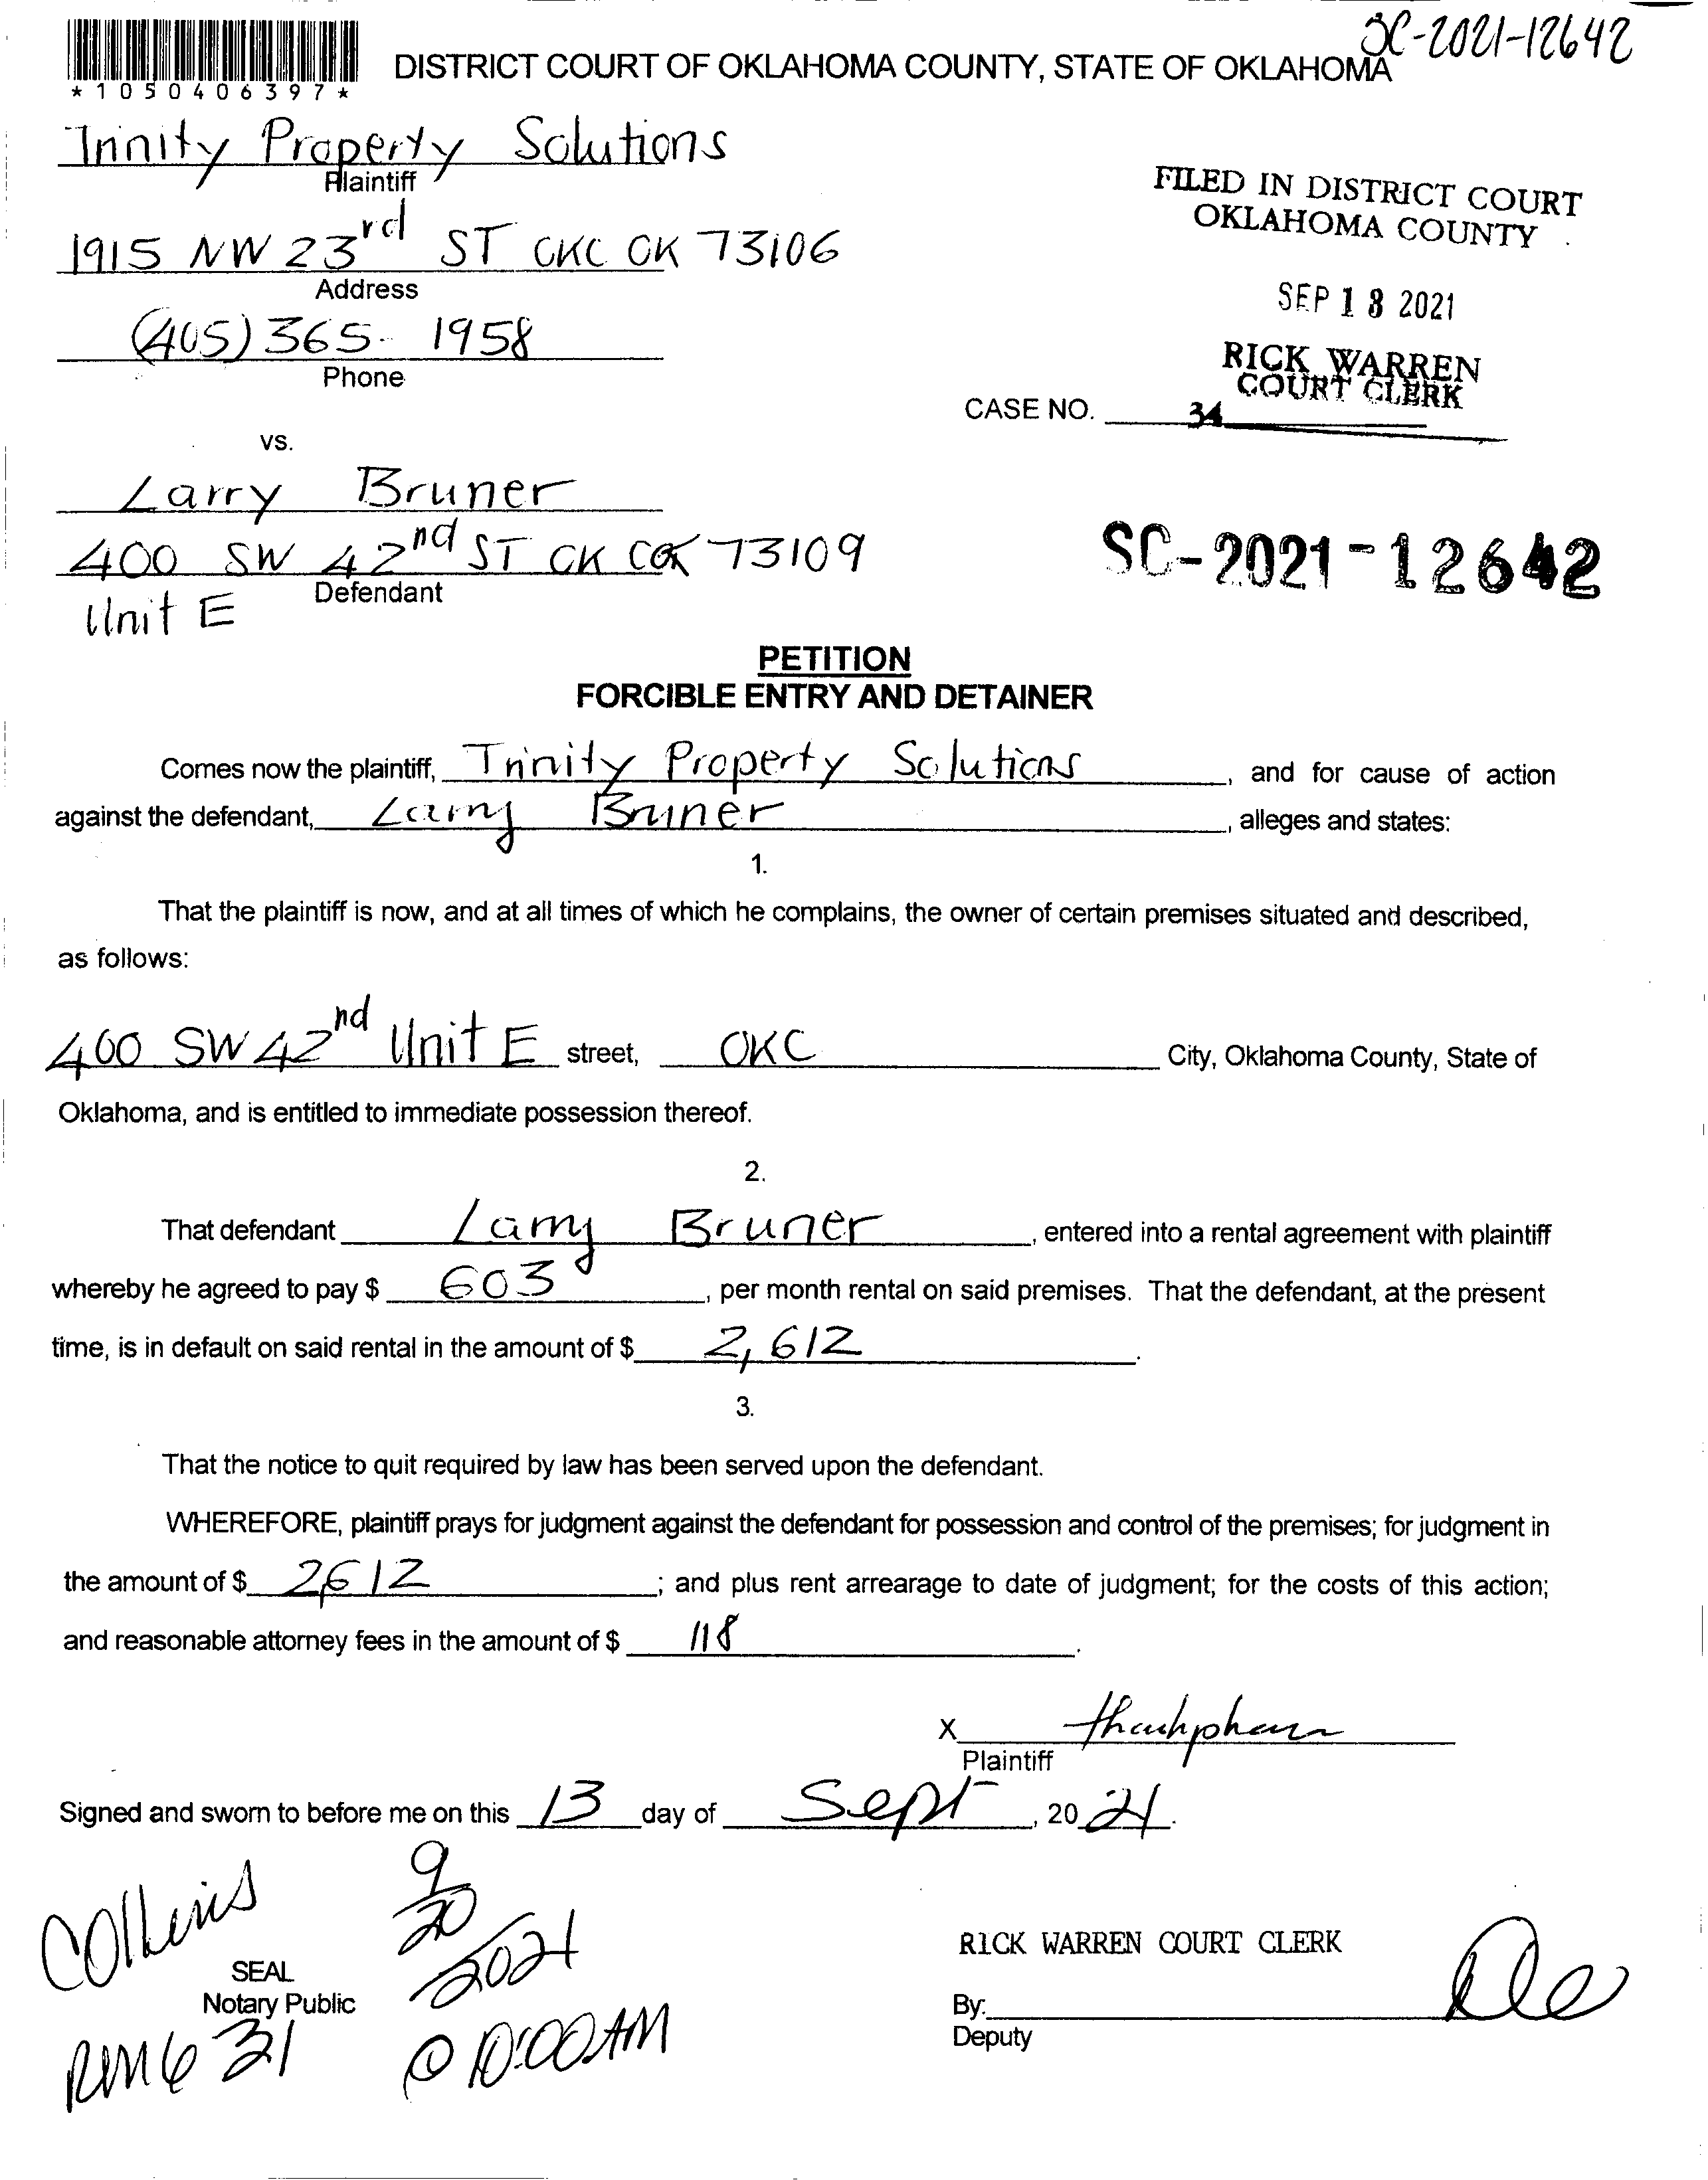 SC-2021-12642
*1050406397*
DISTRICT COURT OF OKLAHOMA COUNTY, STATE OF OKLAHOMA
Trinity Property Solutions
Plaintiff
1915 NW 23rd ST OKC OK 73106
Address
(405) 365-1958
Phone
FILED IN DISTRICT COURT
OKLAHOMA COUNTY
SEP 13 2021
RICK WARREN
COURT CLERK
CASE NO. 34
vs.
Larry Bruner
400 SW 42nd ST OKC OK 73109
Defendant
Unit E
SC-2021-12642
PETITION
FORCIBLE ENTRY AND DETAINER
Comes now the plaintiff, Trinity Property Solutions, and for cause of action
against the defendant, Larry Bruner, alleges and states:
1.
That the plaintiff is now, and at all times of which he complains, the owner of certain premises situated and described,
as follows:
400 SW 42nd Unit E street, OKC City, Oklahoma County, State of
Oklahoma, and is entitled to immediate possession thereof.
2.
That defendant Larry Bruner, entered into a rental agreement with plaintiff
whereby he agreed to pay $ 603, per month rental on said premises. That the defendant, at the present
time, is in default on said rental in the amount of $ 2,612.
3.
That the notice to quit required by law has been served upon the defendant.
WHEREFORE, plaintiff prays for judgment against the defendant for possession and control of the premises; for judgment in
the amount of $ 2,612; and plus rent arrearage to date of judgment; for the costs of this action;
and reasonable attorney fees in the amount of $ 118.
X
Plaintiff
Signed and sworn to before me on this 13 day of Sept, 2021.
Collins
9/20/2021
SEAL
Notary Public
RICK WARREN COURT CLERK
By:
Deputy
@ 10:00AM